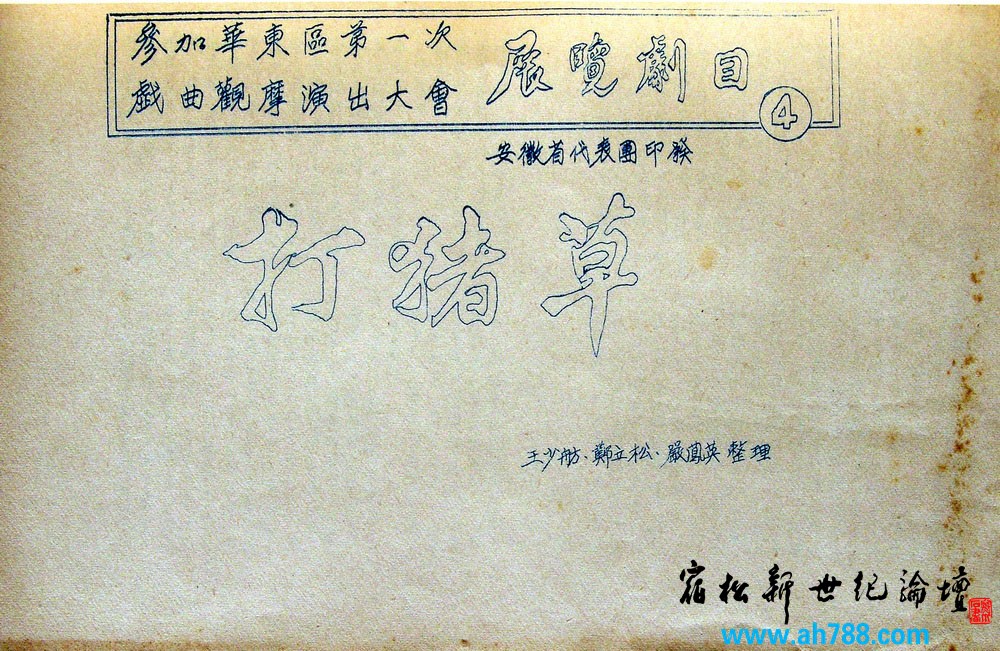 參加華東區第一次
戲曲觀摩演出大會
展覽劇目
4
安徽省代表團印發
打猪草
王少舫、鄭立松、嚴鳳英整理
宿松新世纪論壇
www.ah788.com